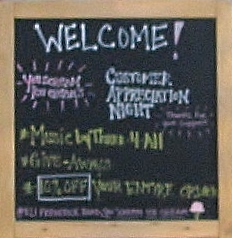 WELCOME!
CUSTOMER
APPRECIATION
NIGHT
Thanks for
your support!
*Music by Three 4 All
*GIVE-AWAYS
*10% OFF YOUR ENTIRE ORDER